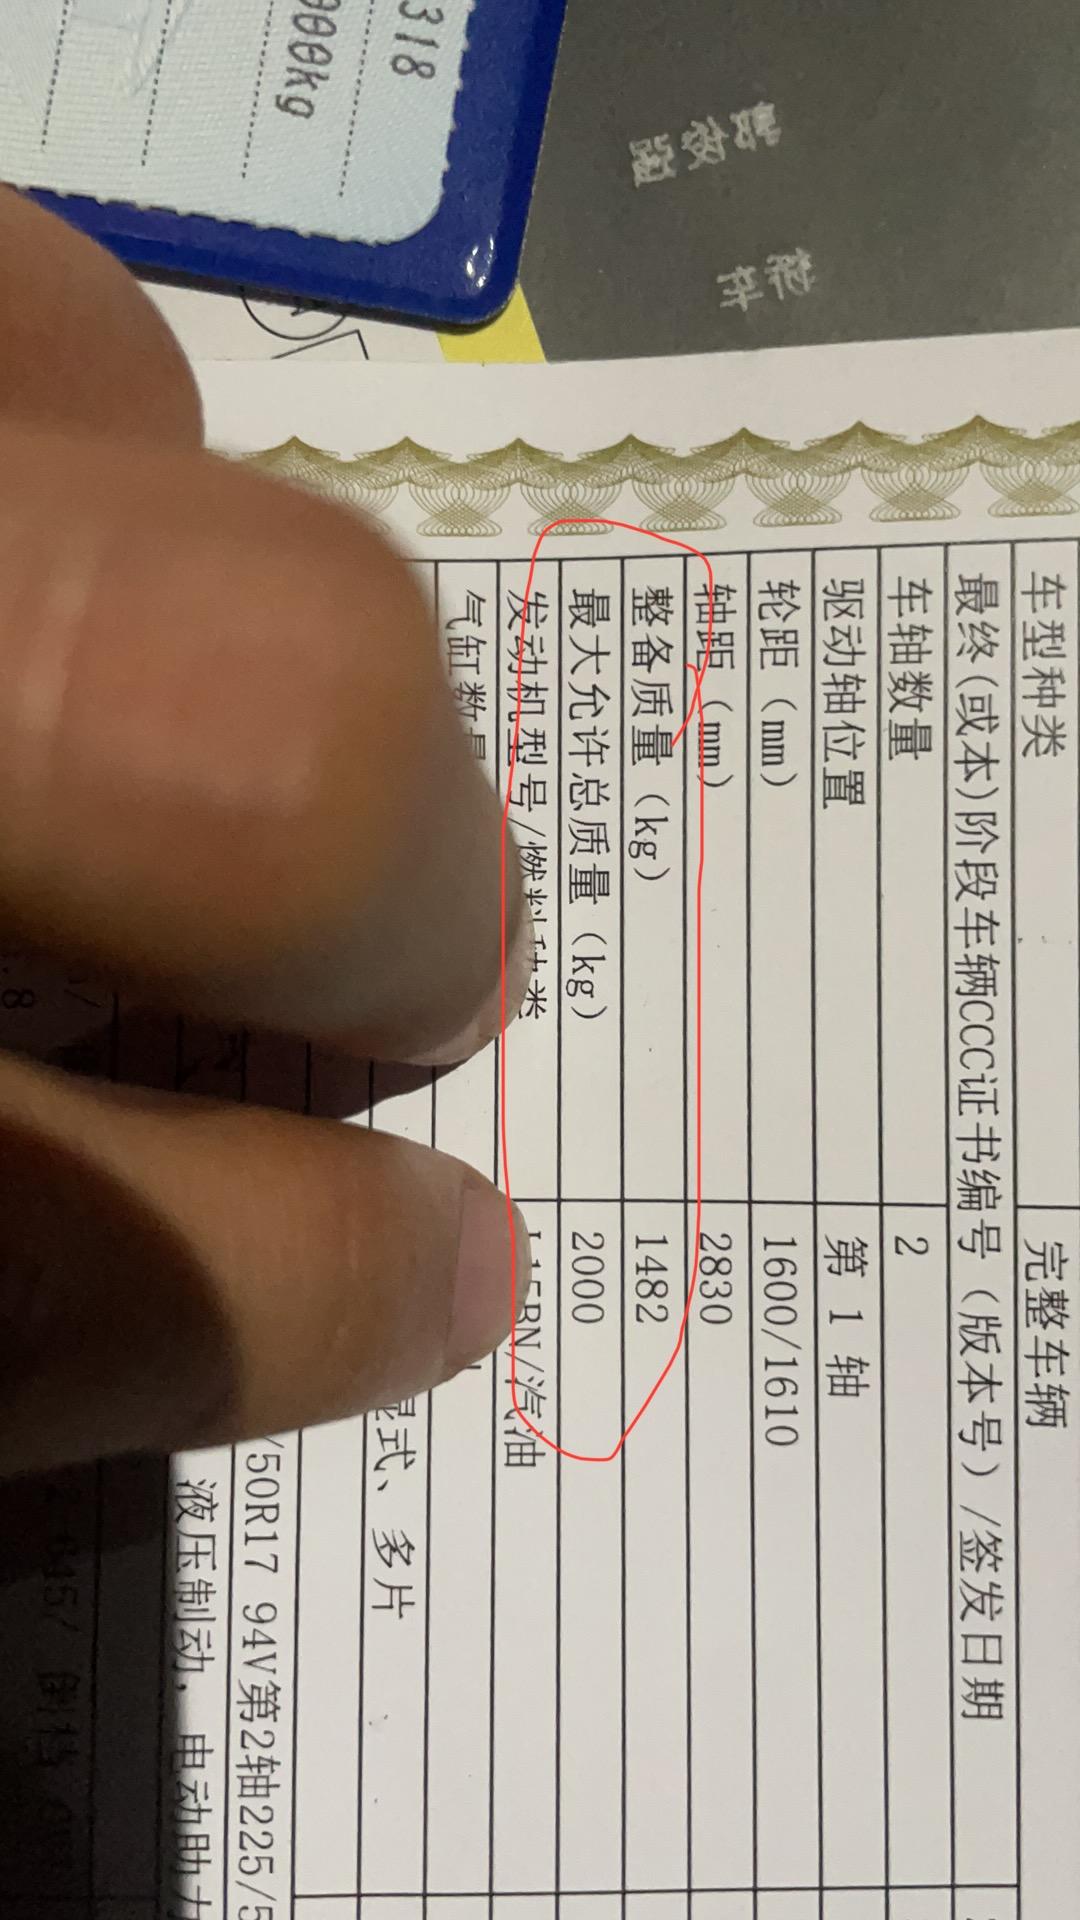 318
000kg
车型种类 完整车辆
最终(或本)阶段车辆CCC证书编号（版本号）/签发日期
车轴数量 2
驱动轴位置 第 1 轴
轮距（mm） 1600/1610
轴距（mm） 2830
整备质量（kg） 1482
最大允许总质量（kg） 2000
发动机型号/燃料种类 L15BN/汽油
气缸数量
湿式、多片
/50R17 94V第2轴225/5
液压制动，电动助力